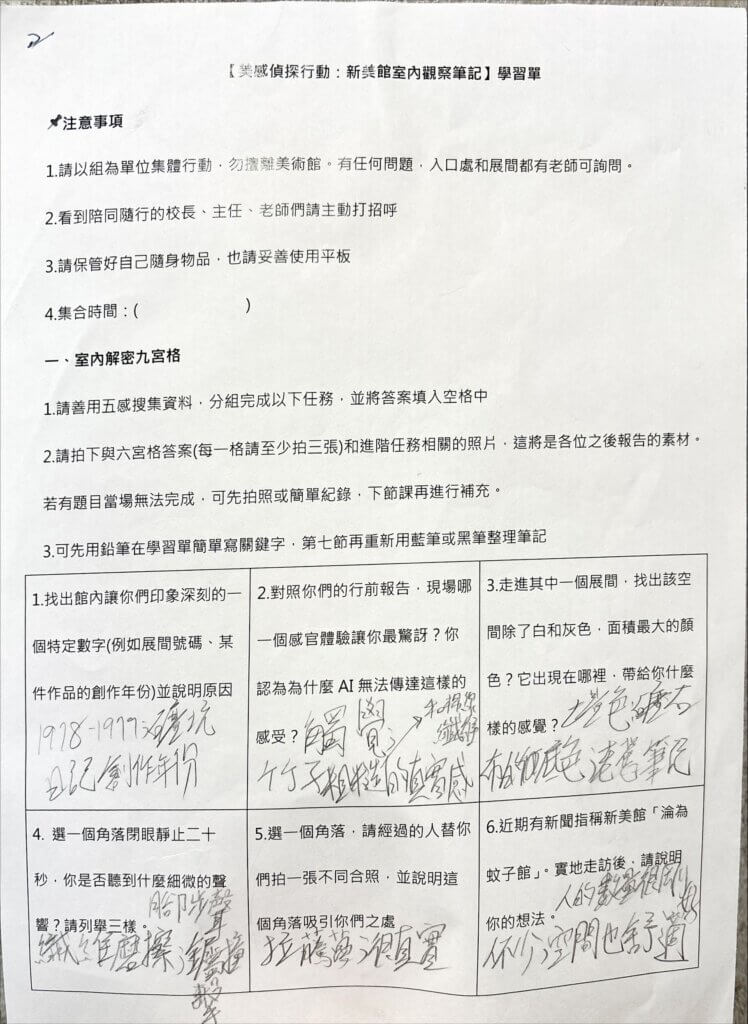 2
【美感偵探行動：新美館室內觀察筆記】學習單
📌注意事項
1.請以組為單位集體行動，勿擅離美術館。有任何問題，入口處和展間都有老師可詢問。
2.看到陪同隨行的校長、主任、老師們請主動打招呼
3.請保管好自己隨身物品，也請妥善使用平板
4.集合時間：( )
一、室內解密九宮格
1.請善用五感搜集資料，分組完成以下任務，並將答案填入空格中
2.請拍下與六宮格答案(每一格請至少拍三張)和進階任務相關的照片，這將是各位之後報告的素材。
若有題目當場無法完成，可先拍照或簡單紀錄，下節課再進行補充。
3.可先用鉛筆在學習單簡單寫關鍵字，第七節再重新用藍筆或黑筆整理筆記
1.找出館內讓你們印象深刻的一
個特定數字(例如展間號碼、某
件作品的創作年份)並說明原因
1978-1979:礦坑
日記創作年份
2.對照你們的行前報告，現場哪
一個感官體驗讓你最驚訝？你
認為為什麼 AI 無法傳達這樣的
感受？觸覺→
竹子粗糙的真實感
3.走進其中一個展間，找出該空
間除了白和灰色，面積最大的顏
色？它出現在哪裡，帶給你什麼
樣的感覺？
筆記
4. 選一個角落閉眼靜止二十
秒，你是否聽到什麼細微的聲
響？請列舉三樣。腳步聲
纖維磨擦
撞擊
5.選一個角落，請經過的人替你
們拍一張不同合照，並說明這
個角落吸引你們之處
很真實
6.近期有新聞指稱新美館「淪為
蚊子館」。實地走訪後，請說明
你的想法。人的數量很剛好
不少空間也舒適